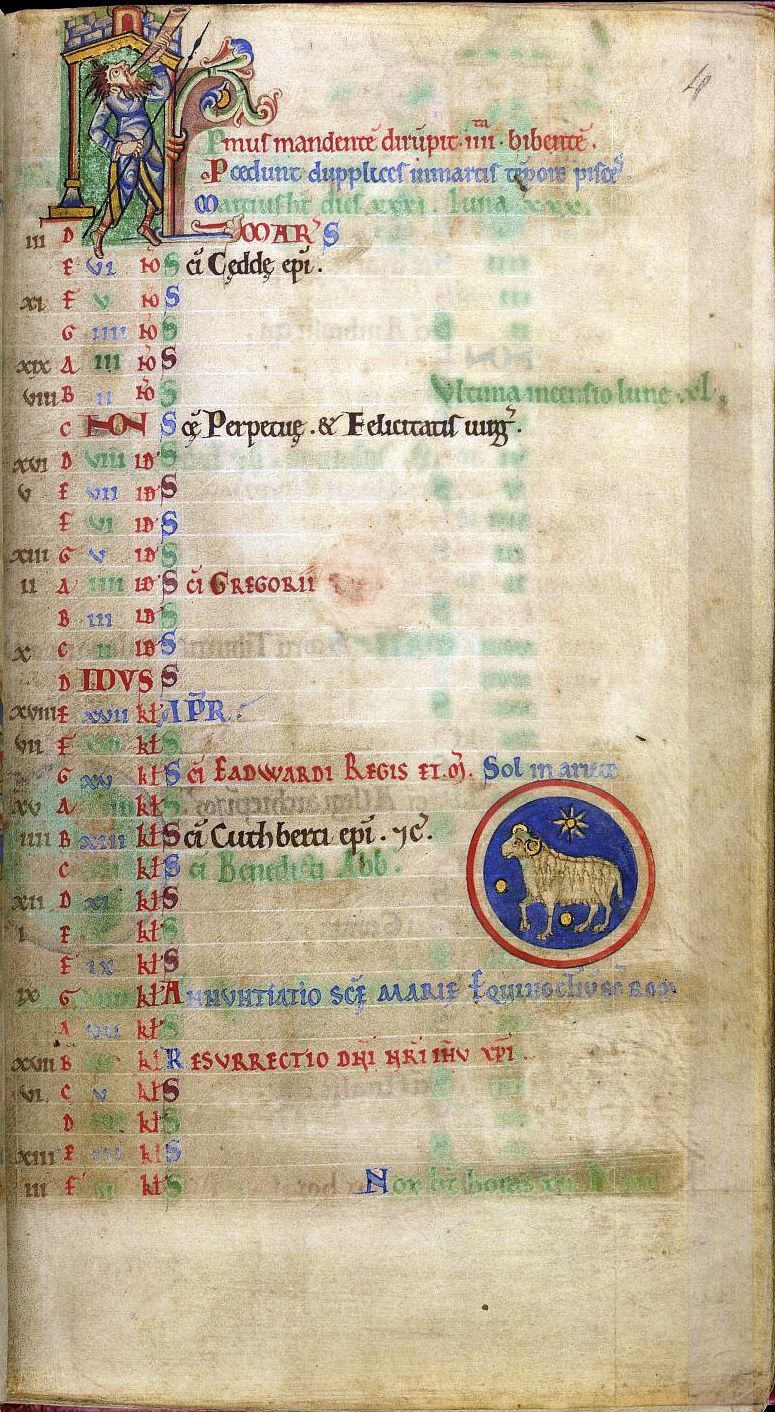 Pmus mandentē dirūpit · iiii · bibentē .
Pcedunt dupplices in martis tēpore pisces
Marcius ht dies xxxi . luna xxx .
iii D MAR'S
E VI ɴ̄o S c̄i Cęddę ep̄i .
xi F V ɴ̄o S
G IIII ɴ̄o S
xix A III ɴ̄o S
viii B II ɴ̄o S Ultima incensio lune .xl.
C NON S cę Perpetuę . & Felicitatis uirḡ .
xvi D VIII ID S
v E VII ID S
F VI ID S
xiii G V ID S
ii A IIII ID S c̄i GREGORII
B III ID S
x C II ID S
D IDVS S
xviii E XVII kl APR̄ .
vii F kl S
G XV kl S c̄i EADWARDI REGIS ET . M̄ . Sol in ariete
xv A kl S
iiii B XIII kl S c̄i Cuthberti ep̄i . ⁊ c̄ .
C kl S c̄i Benedicti Abb .
xii D XI kl S
i E kl S
F IX kl S
ix G kl ANNUNTIATIO SC̄Ę MARIĘ EQUINOCTIU
A VII kl S
xvii B kl RESURRECTIO DN̄I NR̄I IH̄U XP̄I .
vi C V kl S
D kl S
xiiii E III kl S
iii F II kl S Nox ht horas